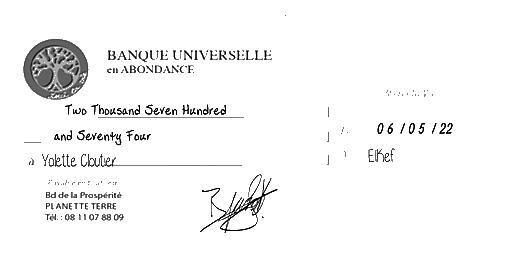 BANQUE UNIVERSELLE
en ABONDANCE
Two Thousand Seven Hundred
and Seventy Four
06/05/22
à Yolette Cloutier
ElKef
Bd de la Prospérité
PLANETTE TERRE
Tél. : 08 11 07 88 09